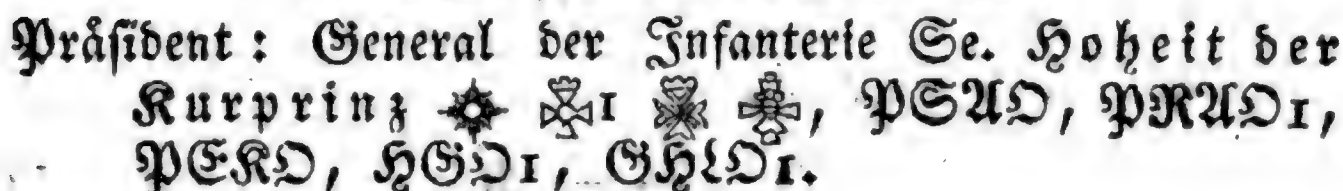 Präſident: General der Infanterie Se. Hoheit der
Kurprinz 1, PSAO, PRAO1,
PEKO, HGO1, GHLO1.